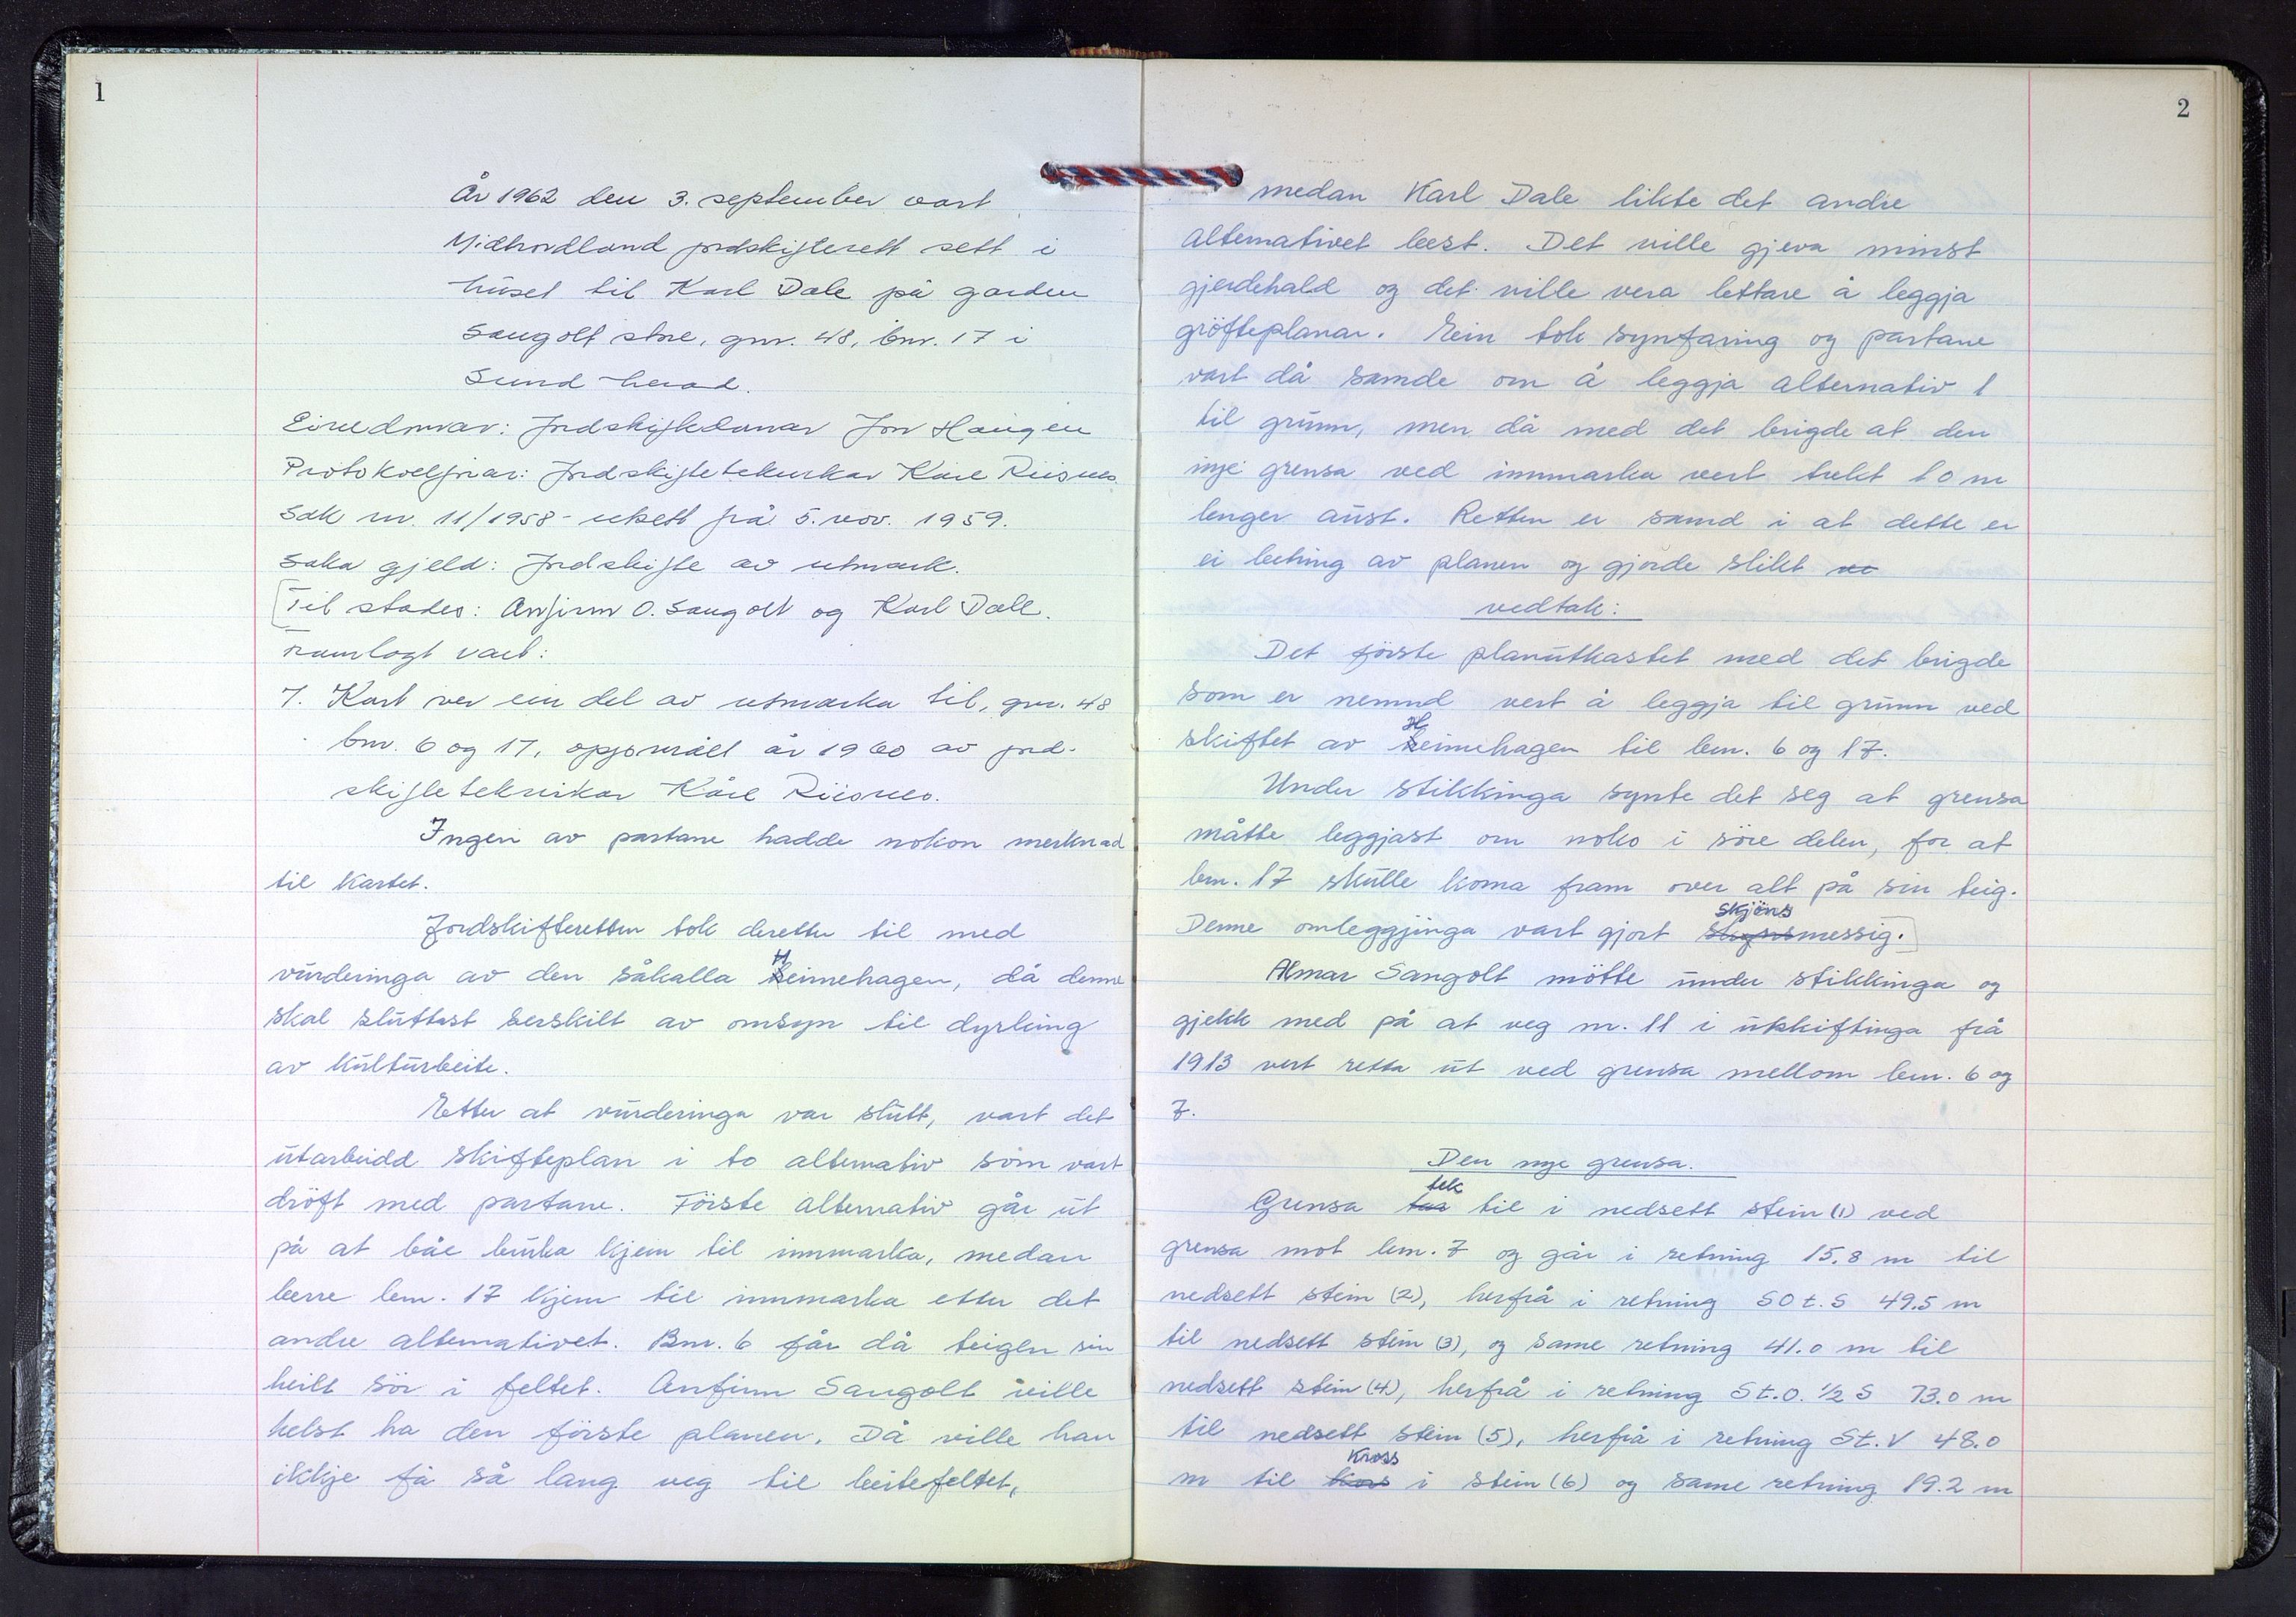 1
År 1962 den 3. september vart
Midhordland jordskifterett sett i
huset til Karl Dale på garden
Sangolt store, gnr. 48, bnr. 17 i
Sund herad.
Einedomar: Jordskiftedomar Jon Haugen
Protokollførar: Jordskifteteknikar Kåre Riisnes
Sak nr. 11/1958 - utsett frå 5. nov. 1959.
Saka gjeld: Jordskifte av utmark.
Til stades: Anfinn O. Sangolt og Karl Dale.
Framlagt vart:
7. Kart over ein del av utmarka til, gnr. 48
bnr. 6 og 17, oppmålt år 1960 av jord-
skifteteknikar Kåre Riisnes.
Ingen av partane hadde nokon merknad
til kartet.
Jordskifteretten tok deretter til med
vurderinga av den såkalla Heimehagen, då denne
skal sluttast serskilt av omsyn til dyrking
av kulturbeite.
Etter at vurderinga var slutt, vart det
utarbeidd skifteplan i to alternativ som vart
dröft med partane. Förste alternativ går ut
på at båe bruka kjem til innmarka, medan
berre bnr. 17 kjem til innmarka etter det
andre alternativet. Bnr. 6 får då teigen sin
heilt sör i feltet. Anfinn Sangolt ville
helst ha den förste planen. Då ville han
ikkje få så lang veg til beitefeltet,
2
medan Karl Dale likte det andre
alternativet best. Det ville gjeva minst
gjerdehald og det ville vera lettare å leggja
gröfteplanar. Ein tok synfaring og partane
vart då samde om å leggja alternativ 1
til grunn, men då med det brigde at den
nye grensa ved innmarka vert trekt 10 m
lenger aust. Retten er samd i at dette er
ei betring av planen og gjorde slikt ve
vedtak:
Det förste planutkastet med det brigde
som er nemnd vert å leggja til grunn ved
skiftet av Heimehagen til bnr. 6 og 17.
Under stikkinga synte det seg at grensa
måtte leggjast om noko i söre delen, for at
bnr. 17 skulle koma fram over alt på sin teig.
Denne omleggjinga vart gjort skjönsmessig.
Almar Sangolt mötte under stikkinga og
gjekk med på at veg nr. 11 i utskiftinga frå
1913 vert retta ut ved grensa mellom bnr. 6 og
7.
Den nye grensa.
Grensa tek til i nedsett stein (1) ved
grensa mot bnr. 7 og går i retning 15.8 m til
nedsett stein (2), herfrå i retning SO t. S 49.5 m
til nedsett stein (3), og same retning 41.0 m til
nedsett stein (4), herfrå i retning S t. O. 1/2 S 73.0 m
til nedsett stein (5), herfrå i retning S t. V 48.0
m til kross i stein (6) og same retning 19.2 m